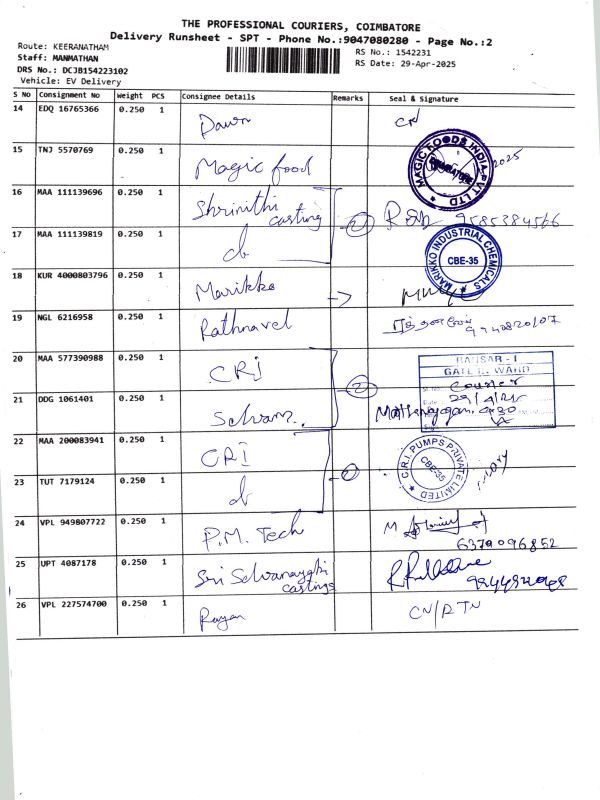 THE PROFESSIONAL COURIERS, COIMBATORE
Delivery Runsheet - SPT - Phone No.:9047080280 - Page No.:2
Route: KEERANATHAM
Staff: MANMATHAN
DRS No.: DCJB154223102
Vehicle: EV Delivery
RS No.: 1542231
RS Date: 29-Apr-2025
S No Consignment No Weight PCS Consignee Details Remarks Seal & Signature
14 EDQ 16765366 0.250 1 Dawn CN
15 TNJ 5570769 0.250 1 Magic food MAGIC FOODS INDIA PVT LTD 2025
16 MAA 111139696 0.250 1 Shrinithi casting 2 9585384566
17 MAA 111139819 0.250 1 do MARIKKO INDUSTRIAL CHEMICALS CBE-35
18 KUR 4000803796 0.250 1 Marikko
19 NGL 6216958 0.250 1 Rathnavel ரத்தினவேல்
20 MAA 577390988 0.250 1 CRI 2 RANSAR - I
GATE
Courier
Date 29/4/25
21 DDG 1061401 0.250 1 Selvam
22 MAA 200083941 0.250 1 CRI C.R.I. PUMPS PRIVATE LIMITED CBE-35
23 TUT 7179124 0.250 1 do
24 VPL 949807722 0.250 1 P.M. Tech M
6379096852
25 UPT 4087178 0.250 1 Sri Selvanayaki castings
26 VPL 227574700 0.250 1 Rayan CN/RTN